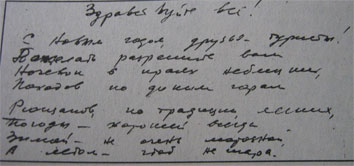 Здравствуйте всі!
С Новым годом, друзья - туристы!
Пожелать разрешите вам
Ночевки в краях неблизких,
Походов по диким горам
Рюкзаков, по традиции легких,
Погоды - хорошей всегда
Зимой - не очень морозной,
А летом - чтоб не жара.